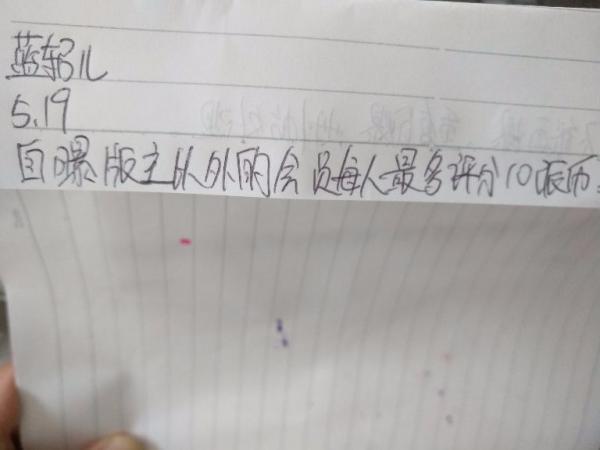 蓝儿
5.19
自曝版主以外的会员每人最多评分10币